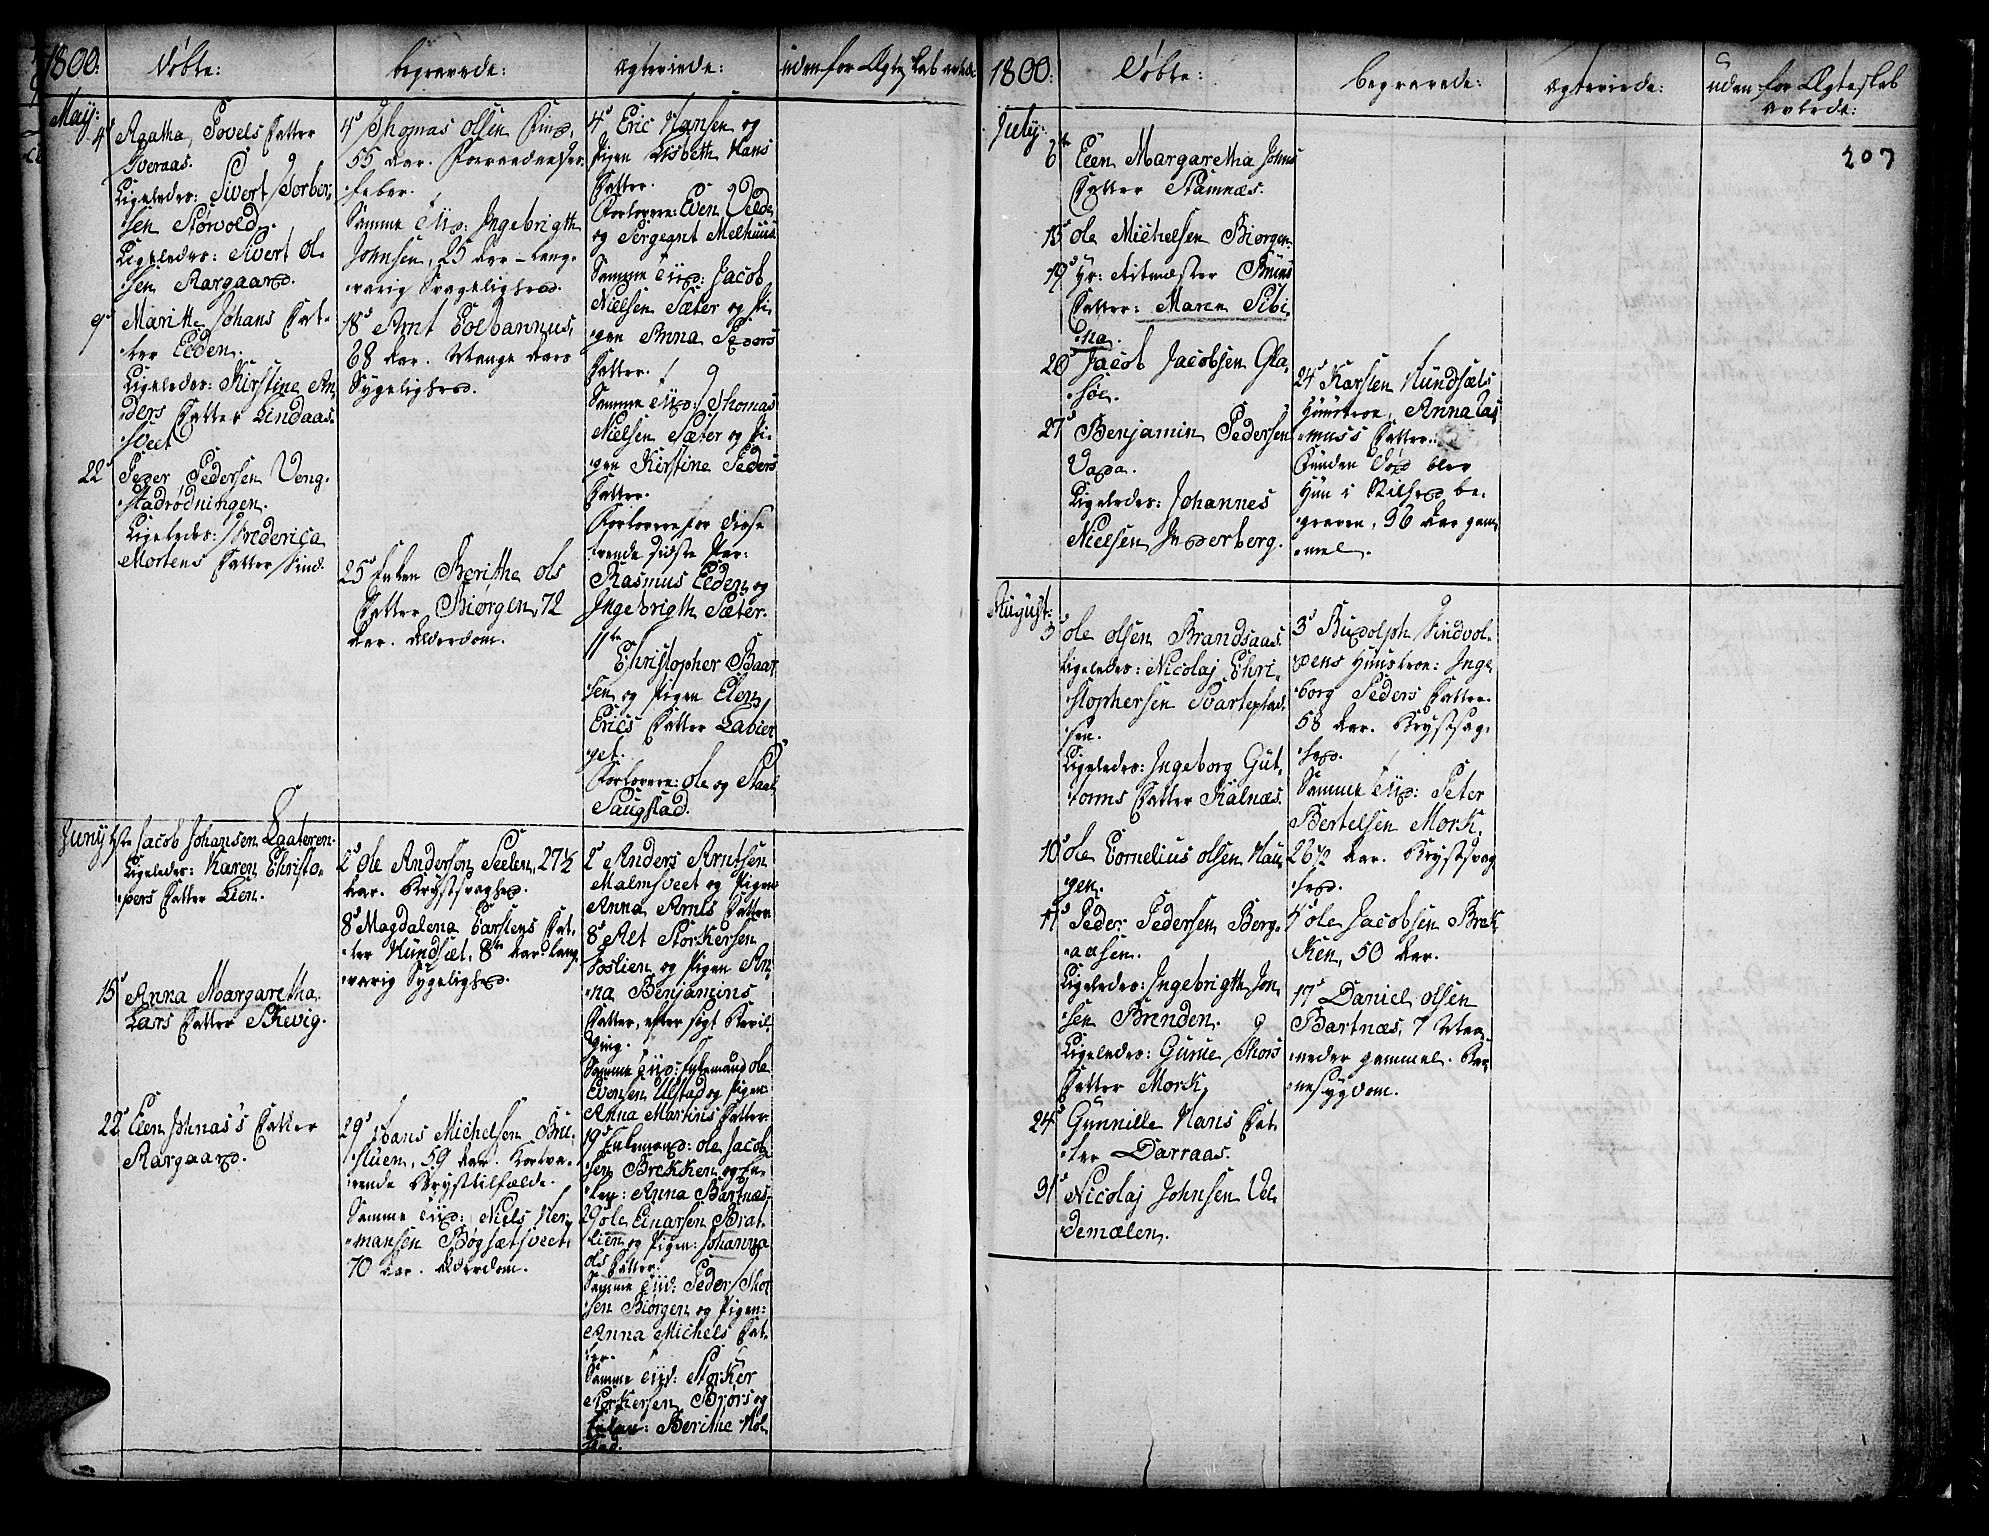 1800.
Døbte:
begravede:
ægteviede:
uden for Ægteskab avlede
May:
4de Agatha Povels Datter
Overaas.
Ligeledes: Sivert Torber,
sen Storvold.
Ligeledes: Sivert Ol,
sen Aargaard.
9de Maritte Johans Dat,
ter Elden.
Ligeledes: Kirstine An,
ders Datter Lindaas,
Hveet
22de Peder Pedersen Veng,
stadrødningen.
Ligeledes: Frederica
Mortens Datter Sind.
4de Thomas Olsen
55 Aar. Forraadnelses,
feber.
Samme Tiid: Ingebrigth
Johnsen, 25 Aar - Lang,
varig Svagelighed.
18de Arnt Colbannus,
68 Aar. Mange Aars
Sygelighed.
25de Enken Berithe Ols
Datter Biørgen, 72
Aar. Alderdom.
4de Eric Hansen og
Pigen Lisbeth Hans
Datter.
Forlovere: Even Velde
og Sergeant Melhuus
Samme Tiid: Jacob
Nielsen Sæter og Pi,
gen Anna Peders
Datter.
Samme Tiid: Thomas
Nielsen Sæter og Pi,
gen Kirstine Peders
Datter.
Forlovere for disse
tvende sidste Par:
Rasmus Elden og
Ingebrigth Sæter.
11te Christopher Baar,
sen og Pigen Elen
Erics Datter Labier,
get.
Forlovere: Ole og Staal
Saugstad.
Juny 1ste Jacob Johansen Laateren.
Ligeledes: Karen Christo,
pers Datter Lien.
15de Anna Margaretha
Lars Datter Skevig.
22de Elen Johnas's Datter
Aargaard.
2de Ole Anderson Seelen, 27½
Aar. Brystsvaghed.
8de Magdalena Carstens Dat,
ter Hundsæt, 8te Aar. Lang,
varig Sygelighed.
29de Hans Michelsen Bru,
stuen, 59 Aar.
Brysttilfælde.
Samme Tiid: Niels Her,
mansen Bøgsætsveet,
70 Aar. Alderdom.
2de Anders Arntsen
Malmsveet og Pigen
Anna Arnts Datter
8de Alt Storkersen
Foslien og Pigen An,
na Benjamins
Datter, efter
Samme Tiid: Enkemand Ole
Evensen Ulstad og Pigen
Anna Martins Datter.
19de Enkemand: Ole Jacob,
sen Brekken og En,
ken: Anna Bartnæs.
29de Ole Einarsen Brat,
lien og Pigen: Johanna
Ols Datter.
Samme Tiid: Peder Thor,
sen Biørgen og Pigen:
Anna Michels Dat,
ter.
Samme Tiid: Storker
Storkersen Brørs og
Enken: Berithe Hol,
stad.
1800.
Døbte:
begravede:
ægteviede:
uden for Ægteskab
avlede:
207
July:
6te Elen Margaretha Johns
Datter Stamnæs.
15de Ole Michelsen Biørgen.
19de Hr: Ritmester Bruns
Datter: Maren Sibi,
na.
20de Jacob Jacobsen Gla,
søe.
27de Benjamin Pedersen
Vada.
Ligeledes: Johannes
Nielsen Inderberg.
24de Karsten Hundsæts
Huustroe, Anna Ras,
muss Datter.
hun i Stilhed be,
graven, 96 Aar gam,
mel.
August:
3de Ole Olsen Brandsaas.
Ligeledes: Nicolaj Chri,
stophersen Svarteplad,
sen.
Ligeledes: Ingeborg Gut,
torms Datter Kalnæs.
10de Ole Cornelius Olsen Hau,
gen.
Peder Pedersen Berg,
aasen.
Ligeledes: Ingebrigth Jon,
sen Brenden.
Ligeledes: Gurue Thors
Datter Mork.
24de Gunnille Hans Dat,
ter Darraas.
31te Nicolaj Johnsen Vel,
demælen.
3de Rudolph Sindvol,
dens Huustroe: Inge,
borg Peders Datter.
58 Aar. Brystsvag,
hed.
Samme Tiid: Peter
Bertelsen Mork,
26½ Aar. Brystsvag,
hed.
Ole Jacobsen Brek,
ken, 50 Aar.
17de Daniel Olsen
Bartnæs, 7 Maa,
neder gammel. Bør,
nesygdom.